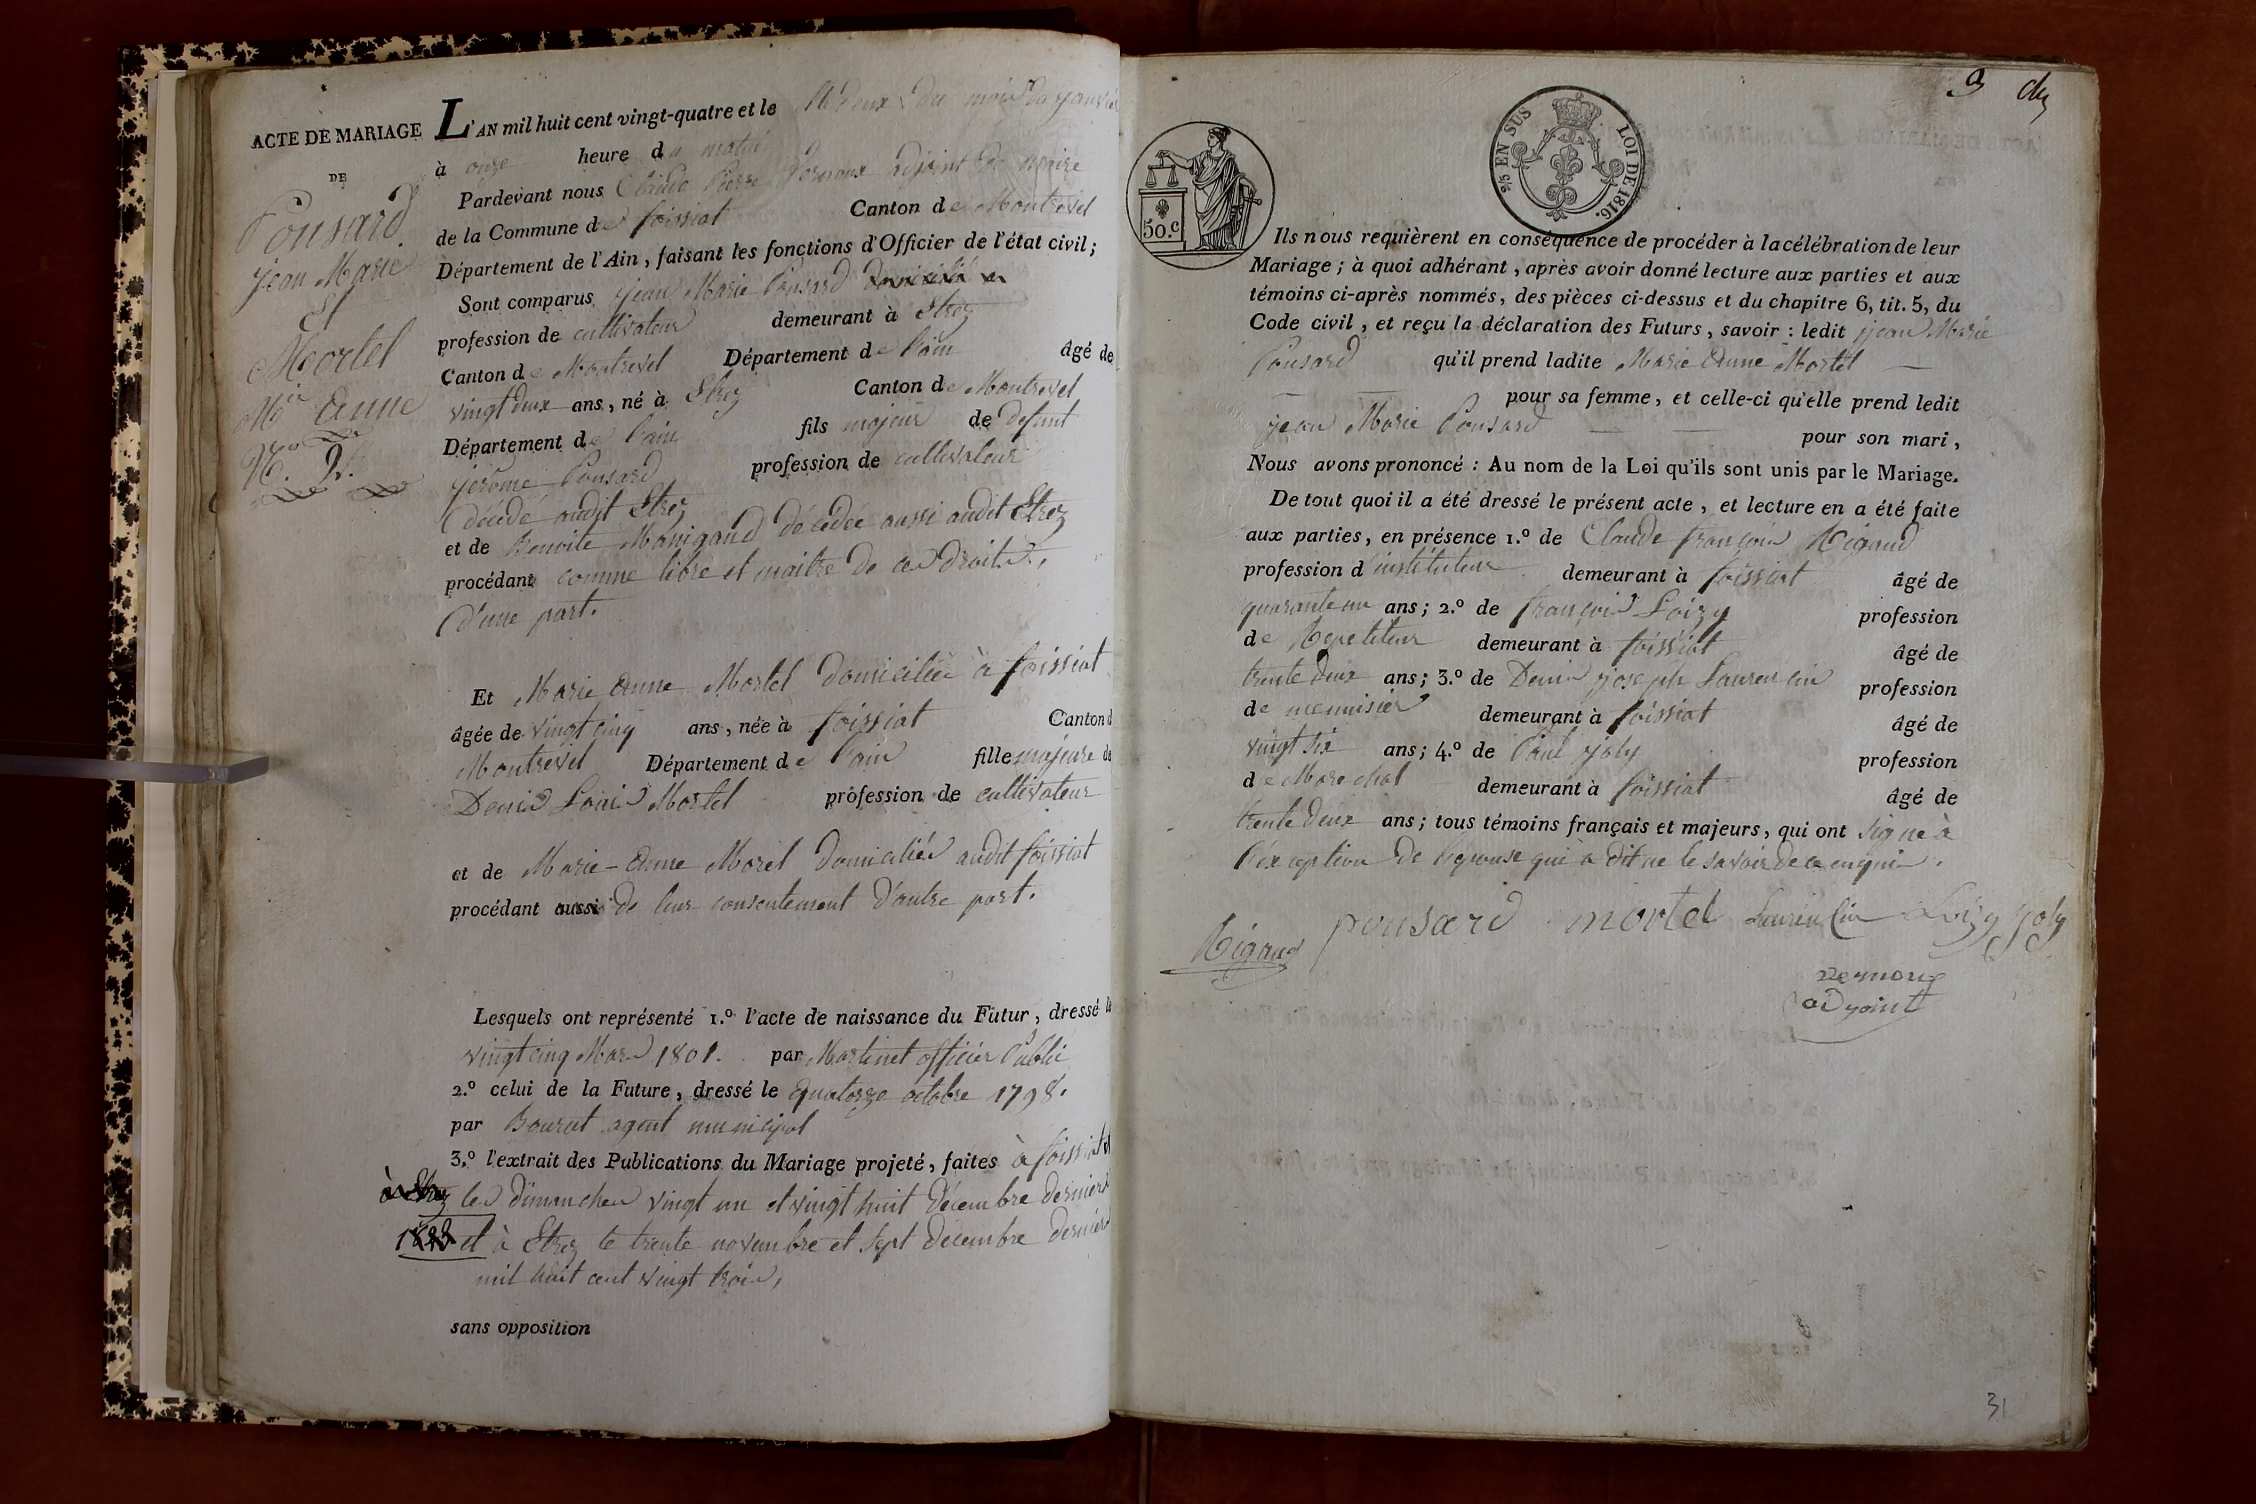 ACTE DE MARIAGE
DE
Ponsard
jean Marie
Et
Mortel
M.ie Anne
N.o 2.
L'AN mil huit cent vingt-quatre et le deux du mois de janvier
à onze heure du matin
Pardevant nous Claude Pierre adjoint du maire
de la Commune de foissiat Canton de Montrevel
Département de l'Ain, faisant les fonctions d'Officier de l'état civil;
Sont comparus jean Marie Ponsard
profession de cultivateur demeurant à Etrez
Canton de Montrevel Département de l'ain âgé de
vingt deux ans, né à Etrez Canton de Montrevel
Département de l'ain fils majeur de defunt
jerome Ponsard profession de cultivateur
décédé audit Etrez
et de Benoite Manigand décédée aussi audit Etrez
procédant comme libre et maitre de ces droits,
d'une part.
Et Marie Anne Mortel domiciliée à foissiat
âgée de vingt cinq ans, née à foissiat Canton d
Montrevel Département de l'ain fille majeure de
Denis Louis Mortel profession de cultivateur
et de Marie-Anne Morel domiciliés audit foissiat
procédant aussi de leur consentement d'autre part.
Lesquels ont représenté 1.º l'acte de naissance du Futur, dressé le
vingt cinq Mars 1801. par Martinet officier Public
2.º celui de la Future, dressé le quatorze octobre 1798.
par Bourcet agent municipal
3.º l'extrait des Publications du Mariage projeté, faites à foissiat
à Etrez les dimanches vingt un et vingt huit décembre derniers
et à Etrez le trente novembre et sept decembre derniers
mil huit cent vingt trois,
sans opposition
3 de
5/10 EN SUS LOI DE 1816.
50.c
Ils nous requièrent en conséquence de procéder à la célébration de leur
Mariage; à quoi adhérant, après avoir donné lecture aux parties et aux
témoins ci-après nommés, des pièces ci-dessus et du chapitre 6, tit. 5, du
Code civil, et reçu la déclaration des Futurs, savoir: ledit jean Marie
Ponsard qu'il prend ladite Marie Anne Mortel
pour sa femme, et celle-ci qu'elle prend ledit
jean Marie Ponsard pour son mari,
Nous avons prononcé: Au nom de la Loi qu'ils sont unis par le Mariage.
De tout quoi il a été dressé le présent acte, et lecture en a été faite
aux parties, en présence 1.º de Claude françois Rigaud
profession d'instituteur demeurant à foissiat âgé de
quarante un ans; 2.º de françois Loizy profession
de Repetiteur demeurant à foissiat âgé de
trente deux ans; 3.º de Denis joseph Laurencin profession
de menuisier demeurant à foissiat âgé de
vingt six ans; 4.º de Paul joly profession
de Marechal demeurant à foissiat âgé de
trente deux ans; tous témoins français et majeurs, qui ont signé à
l'exception de l'epouse qui a dit ne le savoir de ce enquis.
Rigaud ponsard mortel Laurencin Loizy Joly
adjoint
31